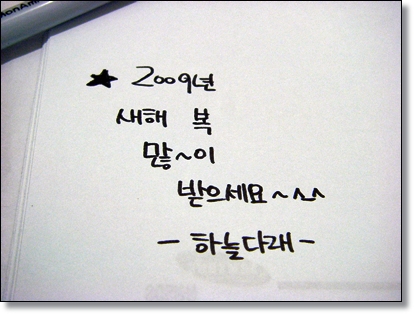 MonAmi
★ 2009년
새해 복
많~이
받으세요~^^
- 하늘다래 -